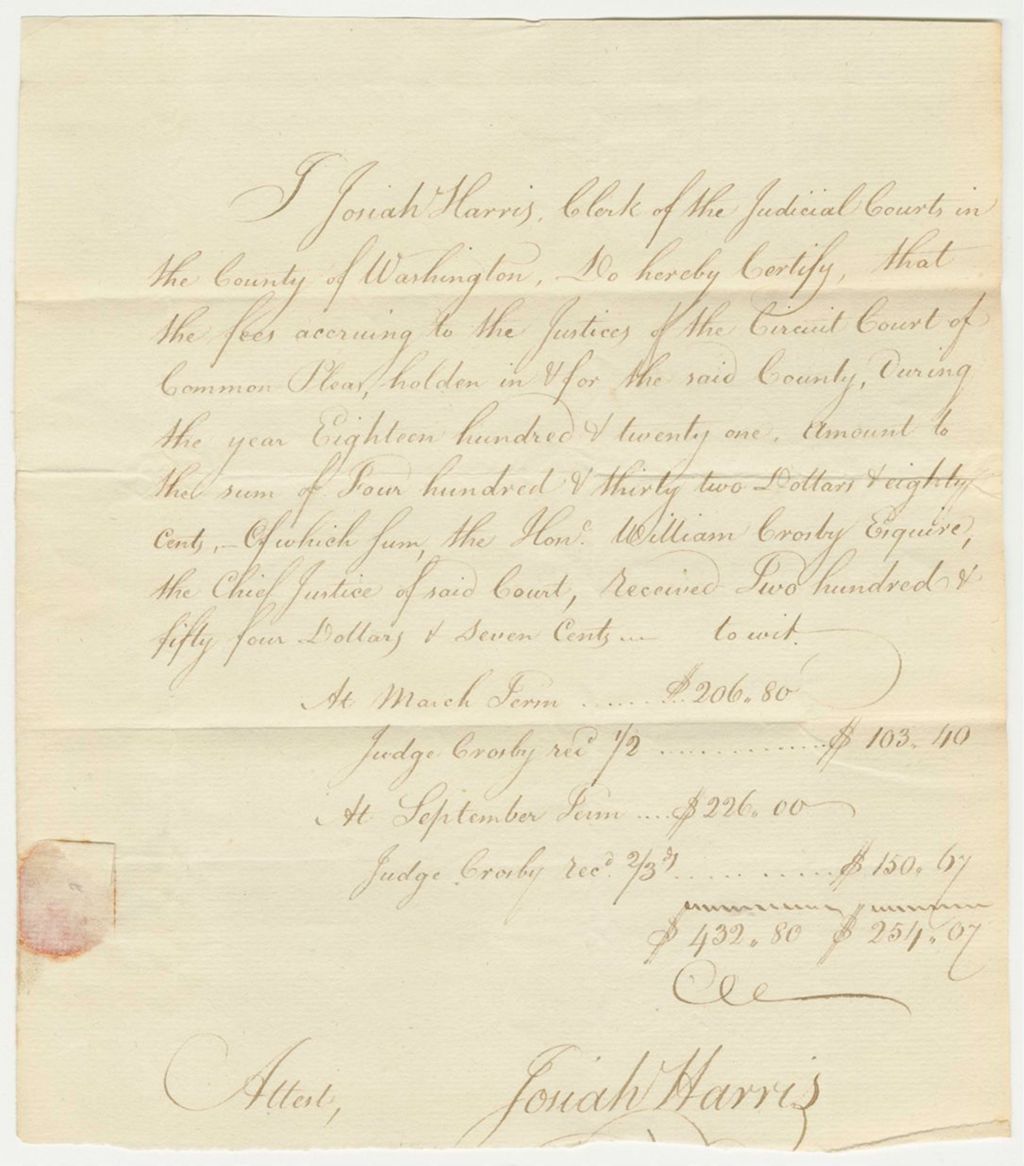 I Josiah Harris, Clerk of the Judicial Courts in
the County of Washington, Do hereby Certify, that
the fees accruing to the Justices of the Circuit Court of
Common Pleas, holden in & for the said County, During
the year Eighteen hundred & twenty one, amount to
the sum of Four hundred & thirty two Dollars & eighty
Cents,— Of which sum, the Hon.e William Crosby Esquire,
the Chief Justice of said Court, received Two hundred &
fifty four Dollars & seven Cents — to wit.
At March Term ......... $206.80
Judge Crosby recd 1/2 ............... $ 103.40
At September Term .... $226.00
Judge Crosby recd. 2/3ds ............ $ 150.67
$ 432.80 $ 254.07
Attest, Josiah Harris